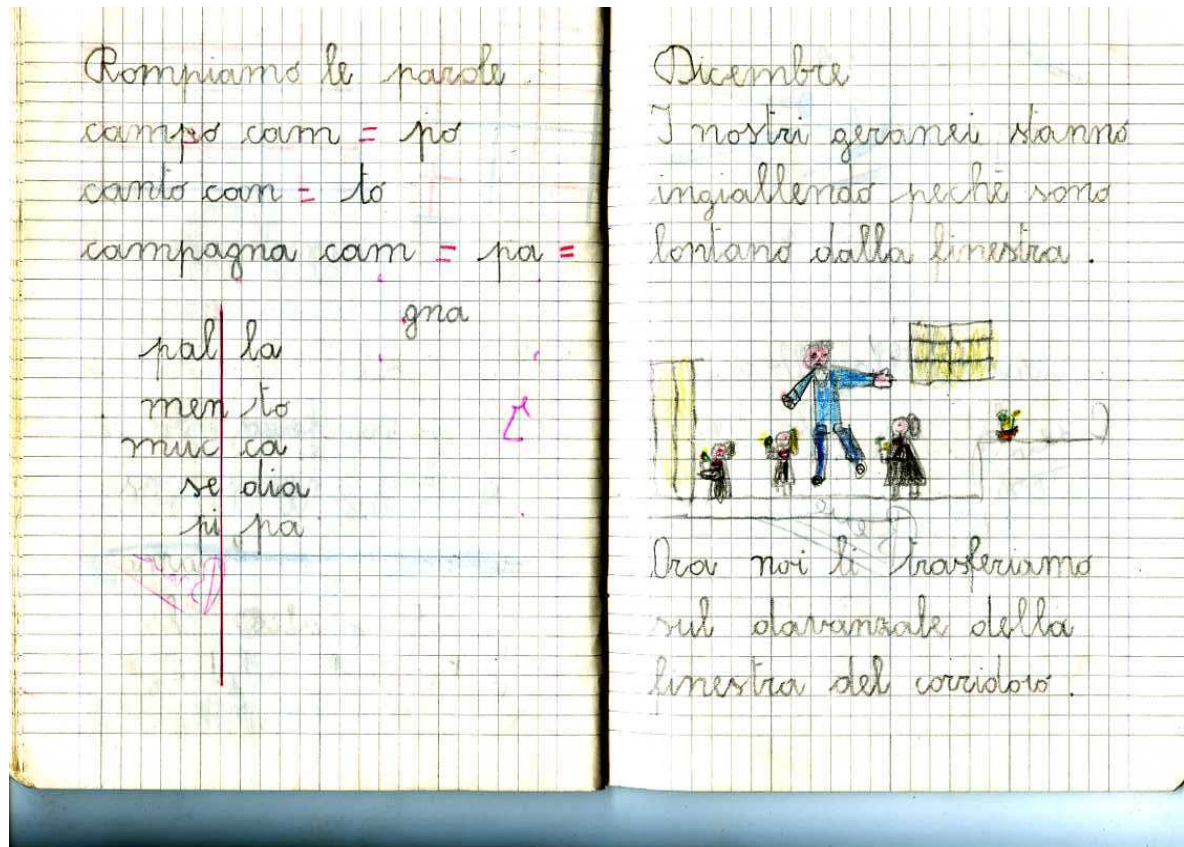 Rompiamo le parole
campo cam = po
canto can = to
campagna cam = pa =
gna
pal la
men to
muc ca
se dia
pi pa
Dicembre
I nostri geranei stanno
ingiallendo pechè sono
lontano dalla finestra.
Ora noi li trasferiamo
sul davanzale della
finestra del corridoio.